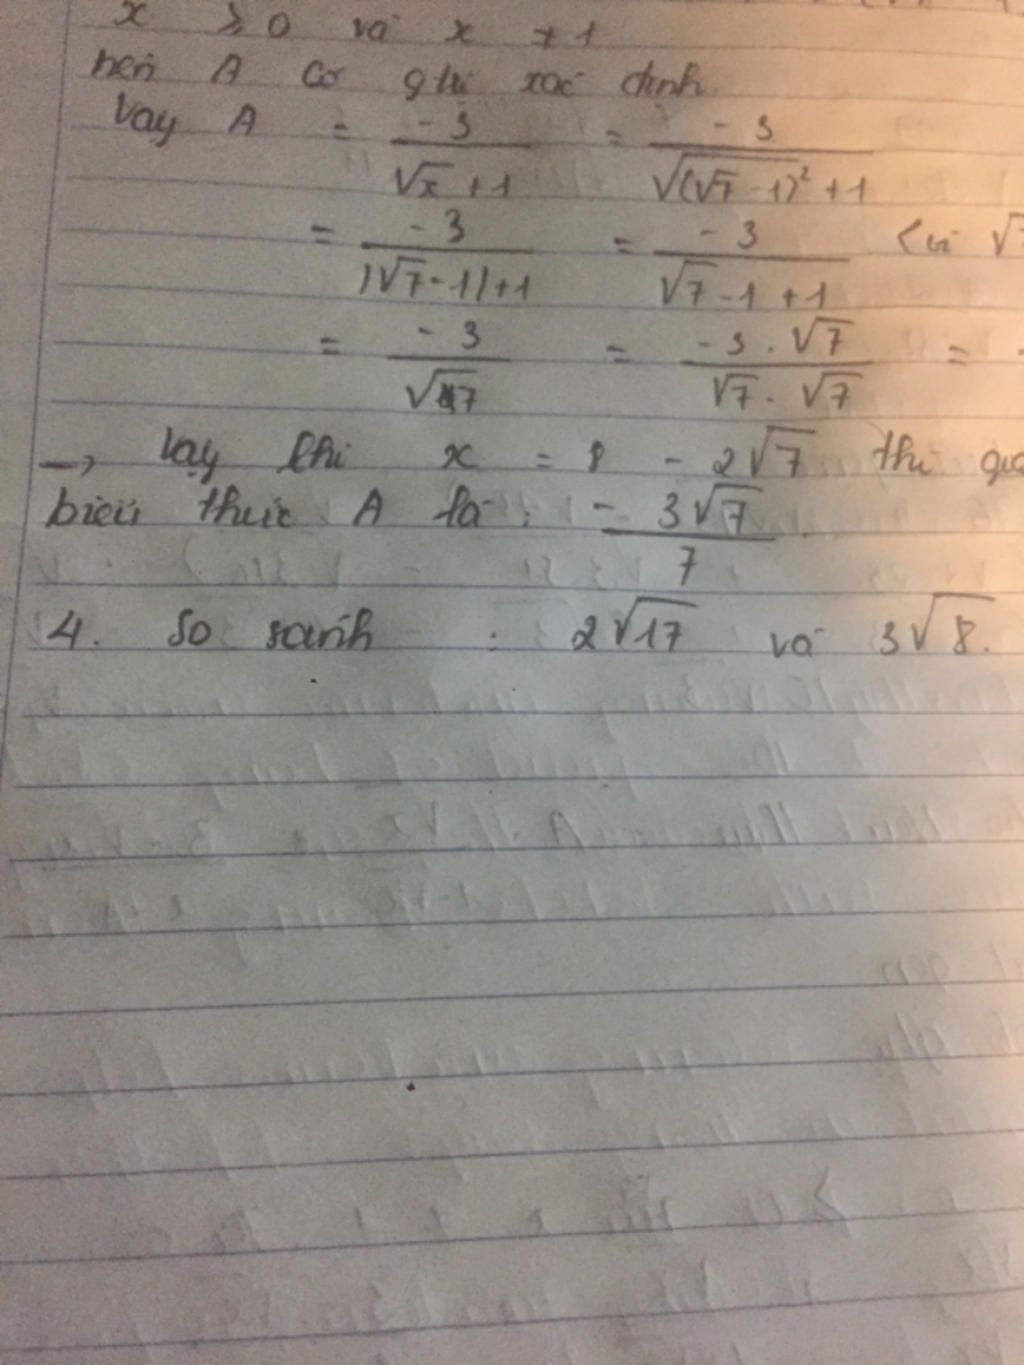 x ≥ 0 và x ≠ 1
nên A có giá trị xác định
Vay A = -3/(√x + 1) = -3/(√((√7 - 1)²) + 1)
= -3/(|√7 - 1| + 1) = -3/(√7 - 1 + 1) (vì √7
= -3/√7 = (-3 . √7)/(√7 . √7) = -
→ Vậy khi x = 8 - 2√7 thì
biểu thức A là : -3√7/7 .
4. So sánh : 2√17 và 3√8.